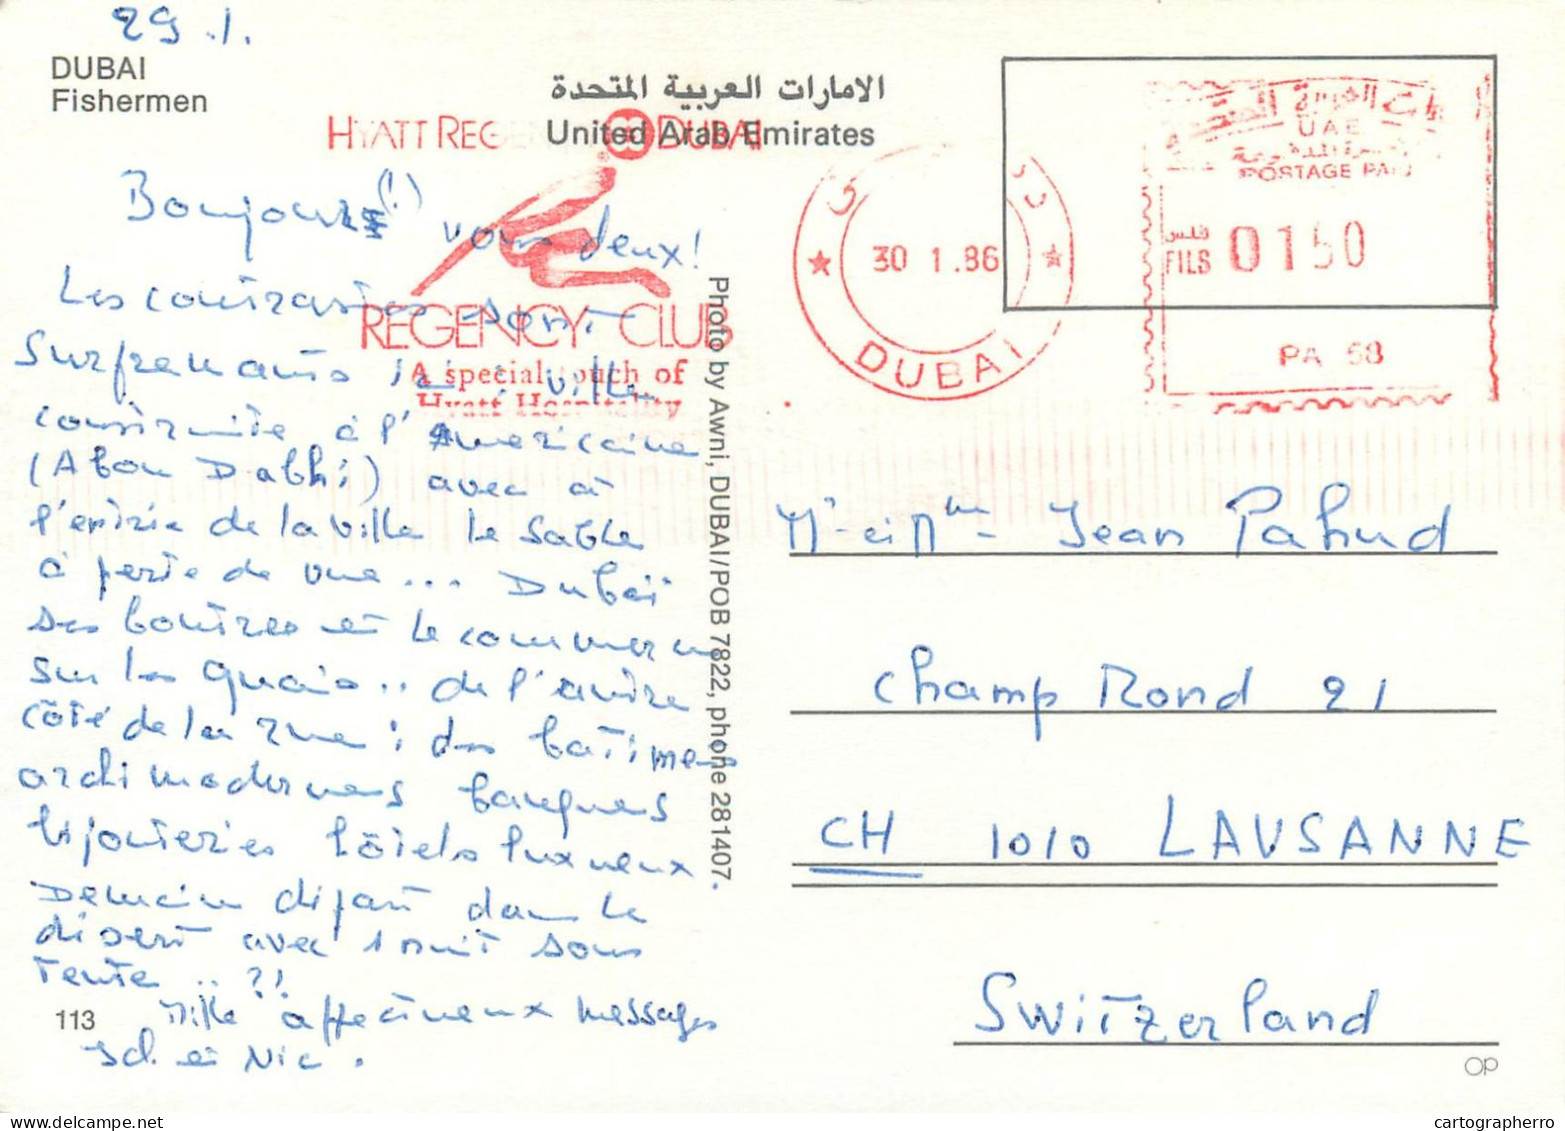 29.1.
DUBAI
Fishermen
الامارات العربية المتحدة
United Arab Emirates
HYATT REGENCY DUBAI
REGENCY CLUB
A special touch of
Hyatt Hospitality
30 1.86
DUBAI
UAE
POSTAGE PAID
فلس
FILS 0150
PA 58
Bonjour (!) vous deux!
Les contrastes sont
surprenants : ville
construite à l'Américaine
(Abou Dabhi) avec à
l'entrée de la ville le sable
à perte de vue ... Dubaï
ses boutres et le commerce
sur les quais .. de l'autre
côté de la rue : des batiments
archi modernes banques
bijouteries hôtels luxueux.
Demain départ dans le
désert avec 1 nuit sous
tente .. ?!
Mille affectueux messages
et Nic.
113
Photo by Awni, DUBAI/POB 7822, phone 281407.
Mr et Mme Jean Pahud
Champ Rond 21
CH 1010 LAUSANNE
Switzerland
OP
cartographerro